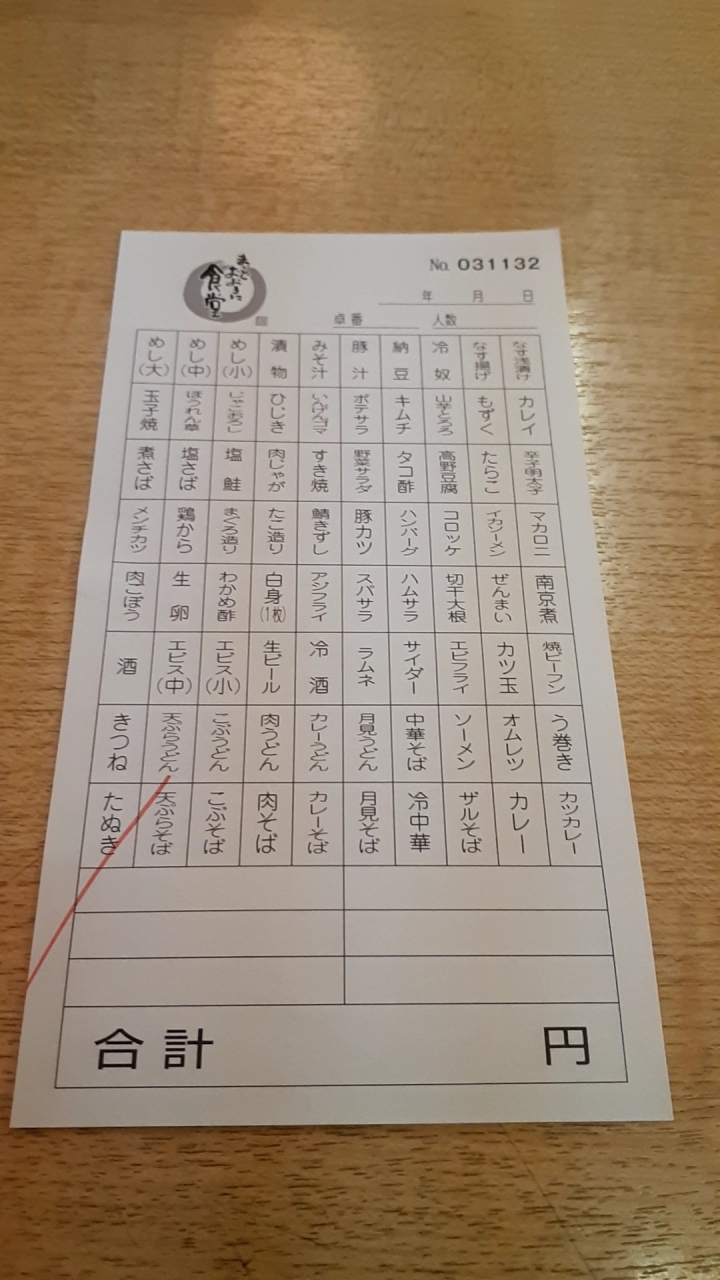 まいどおおきに
食堂
No. 031132
年 月 日
卓番 人数
めし(大) めし(中) めし(小) 漬物 みそ汁 豚汁 納豆 冷奴 なす揚げ なす浅漬け
玉子焼 ほうれん草 じゃこおろし ひじき いんげんゴマ ポテサラ キムチ 山芋とろろ もずく カレイ
煮さば 塩さば 塩鮭 肉じゃが すき焼 野菜サラダ タコ酢 高野豆腐 たらこ 辛子明太子
メンチカツ 鶏から まぐろ造り たこ造り 鯖きずし 豚カツ ハンバーグ コロッケ イカソーメン マカロニ
肉ごぼう 生卵 わかめ酢 白身(1枚) アジフライ スパサラ ハムサラ 切干大根 ぜんまい 南京煮
酒 エビス(中) エビス(小) 生ビール 冷酒 ラムネ サイダー エビフライ カツ玉 焼ビーフン
きつね 天ぷらうどん こぶうどん 肉うどん カレーうどん 月見うどん 中華そば ソーメン オムレツ う巻き
たぬき 天ぷらそば こぶそば 肉そば カレーそば 月見そば 冷中華 ザルそば カレー カツカレー
合計 円